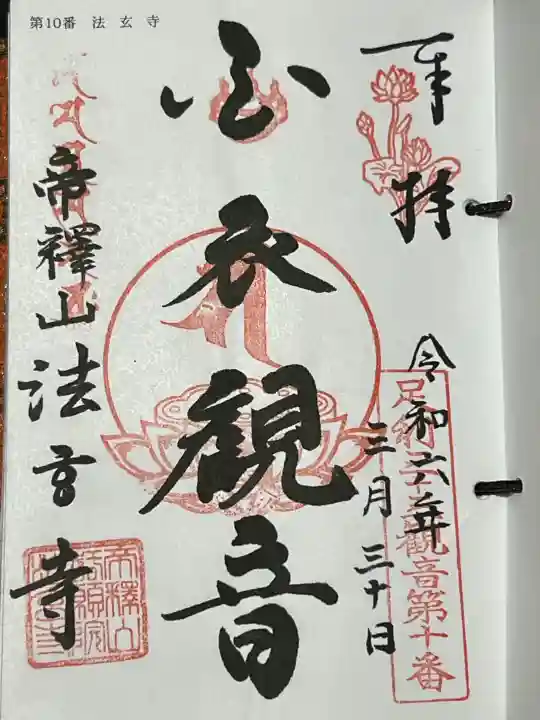 第10番 法玄寺
奉拝
令和六年
三月三十日
足利三十三観音第十番
白衣觀音
帝釋山法玄寺